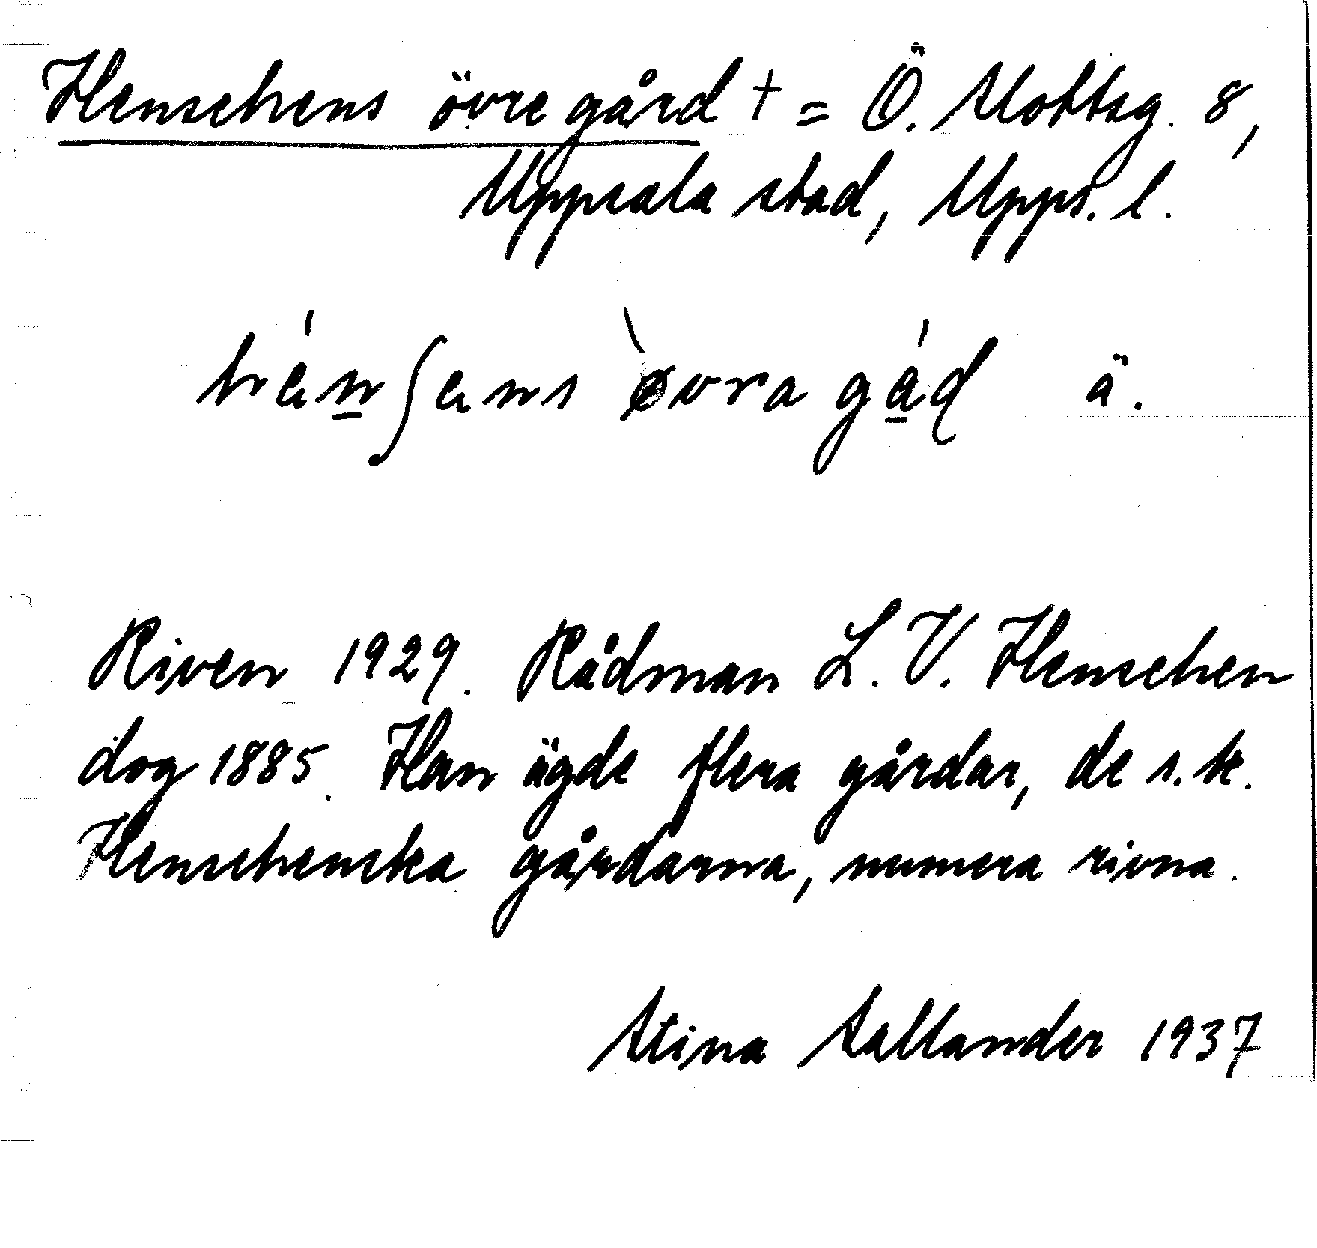 Henschens övre gård † = Ö. Slottsg. 8,
Uppsala stad, Upps. l.
Riven 1929. Rådman L. V. Henschen
dog 1885. Han ägde flera gårdar, de s.k.
Henschenska gårdarna, numera rivna.
Stina Sallander 1937